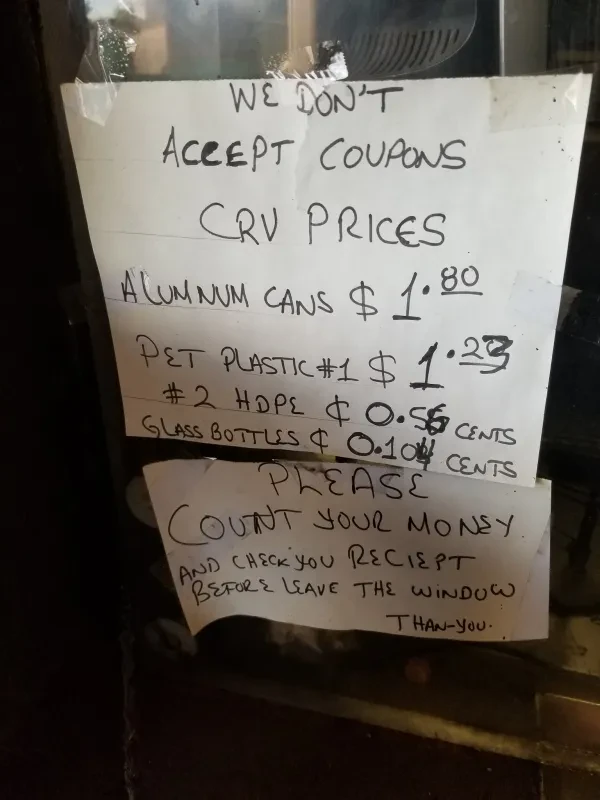 WE DON'T
ACCEPT COUPONS
CRV PRICES
ALUMNUM CANS $ 1.80
PET PLASTIC #1 $ 1.23
#2 HDPE ¢ 0.56 CENTS
GLASS BOTTLES ¢ 0.104 CENTS
PLEASE
COUNT YOUR MONEY.
AND CHECK YOU RECIEPT
BEFORE LEAVE THE WINDOW
THAN-YOU.